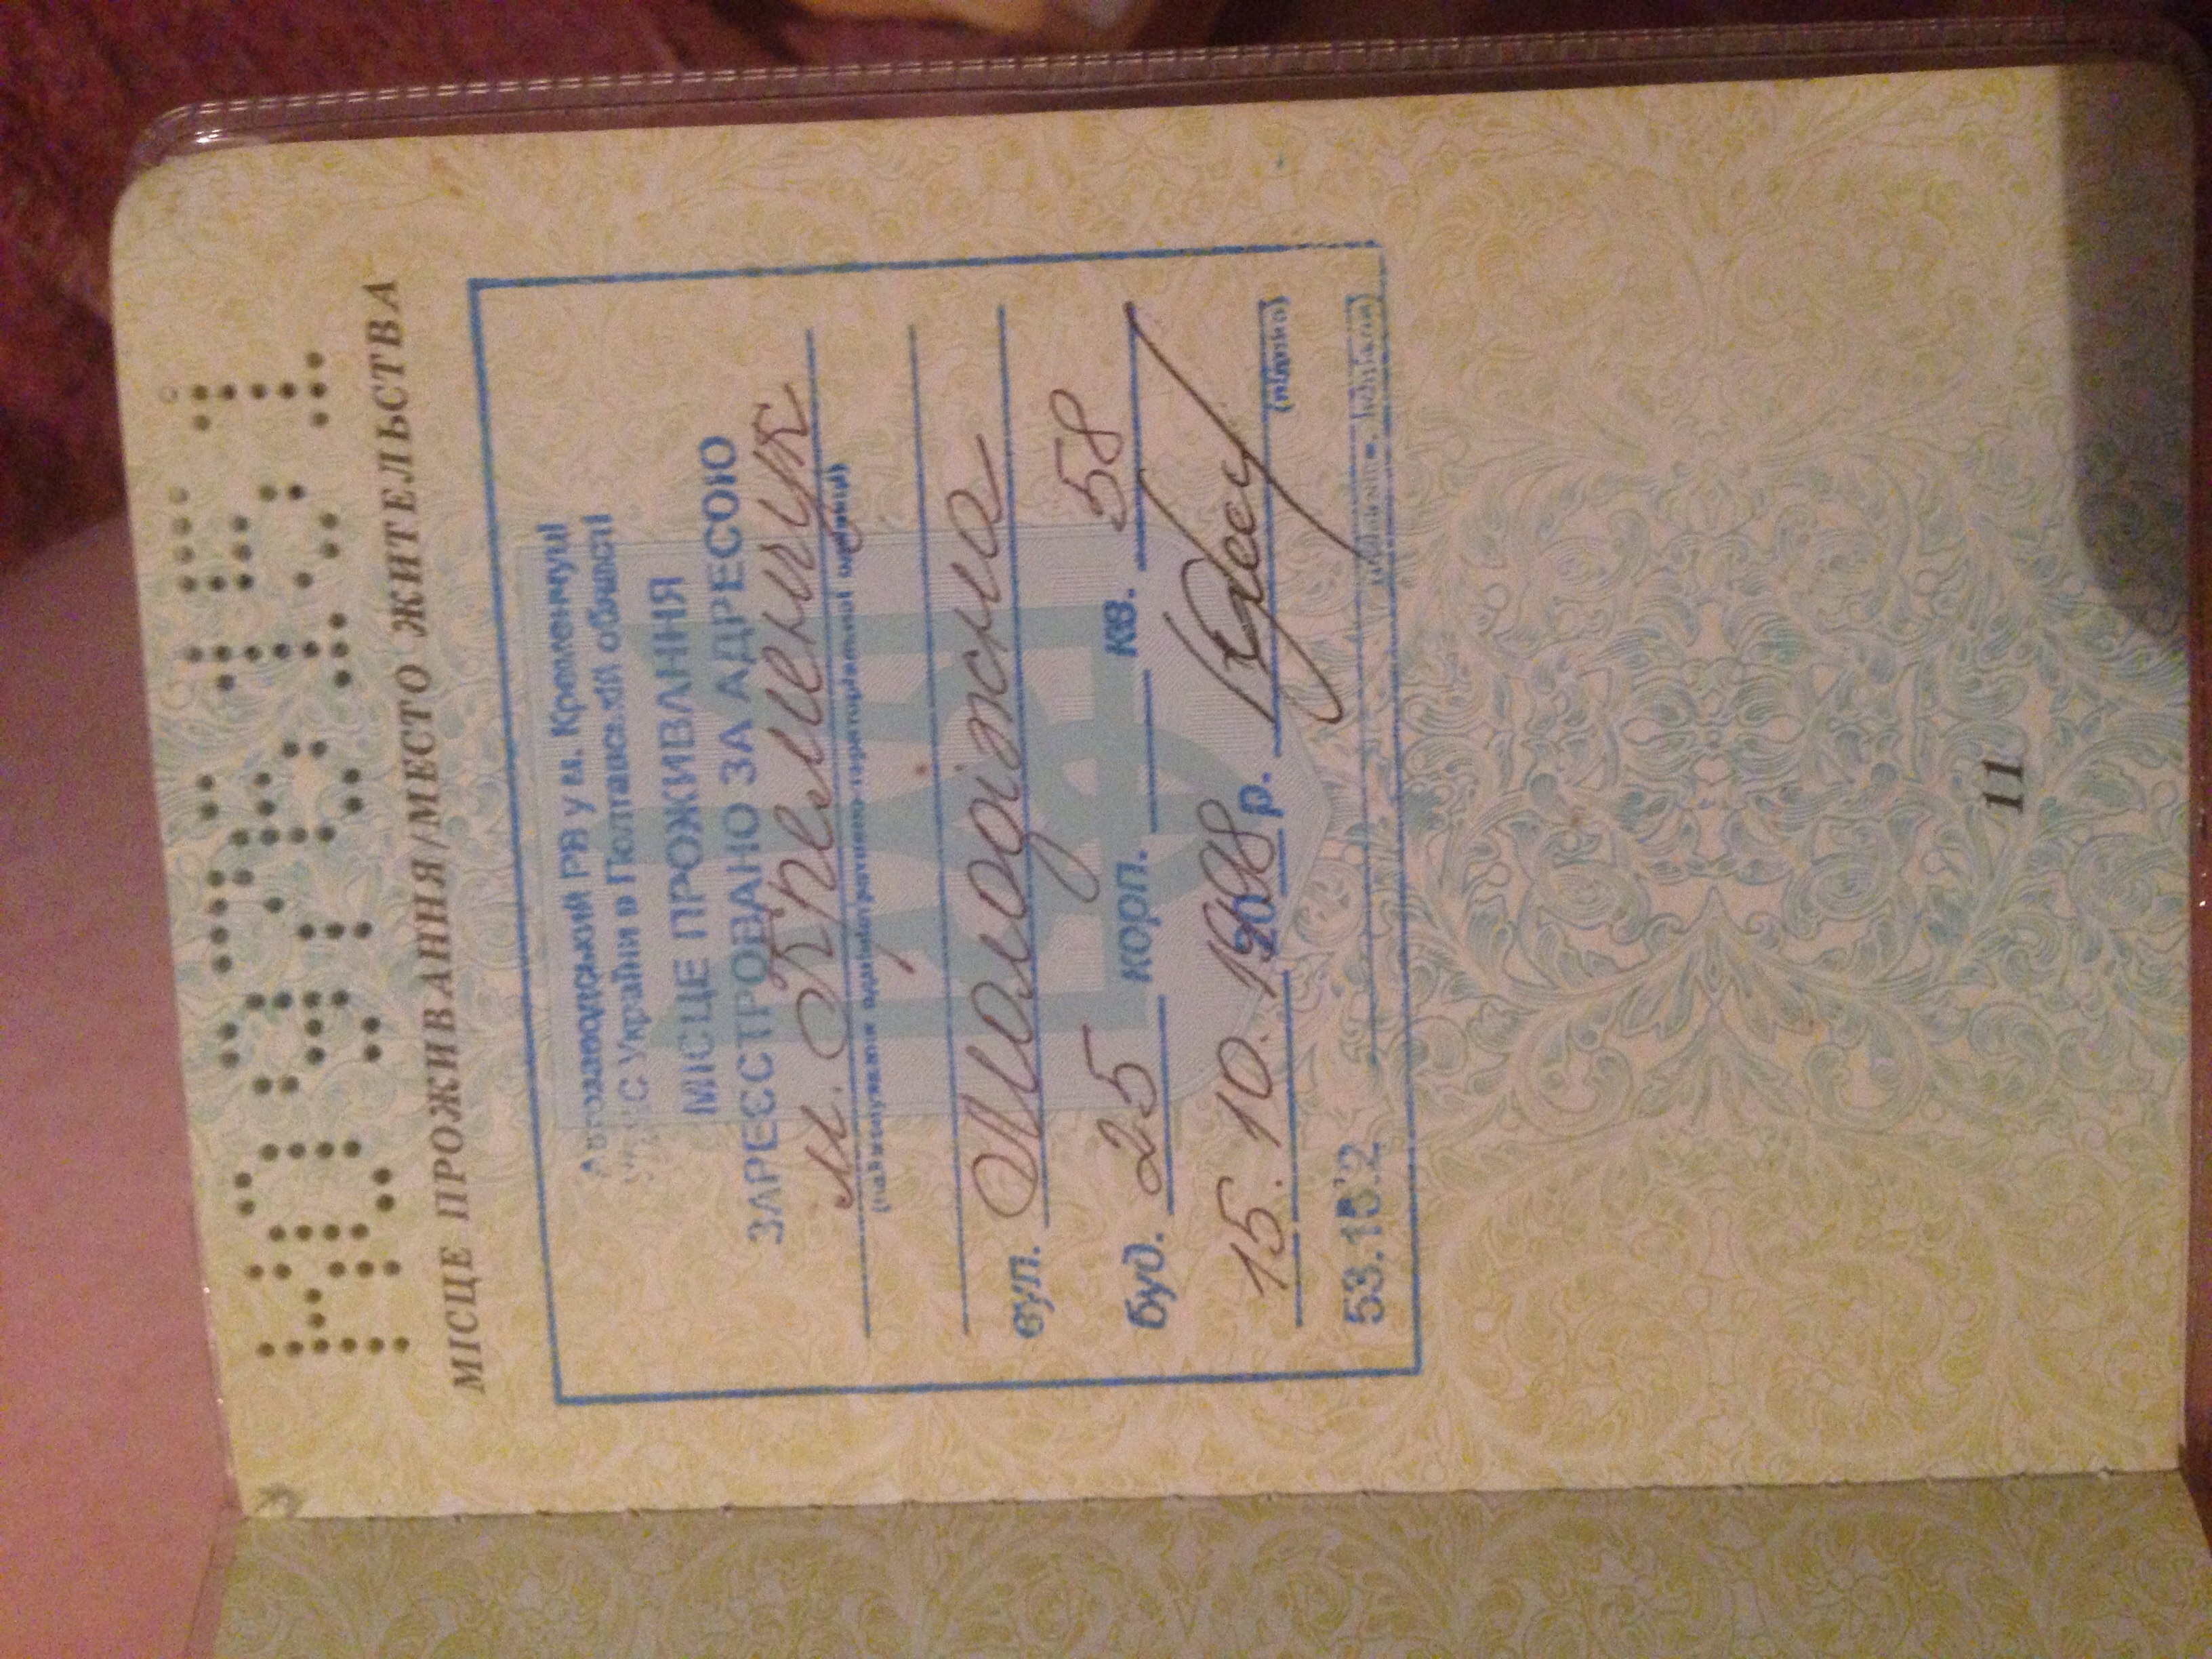 НО 976151
МІСЦЕ ПРОЖИВАННЯ/МЕСТО ЖИТЕЛЬСТВА
Автозаводський РВ у м. Кременчуці
України в Полтавській області
МІСЦЕ ПРОЖИВАННЯ
ЗАРЕЄСТРОВАНО ЗА АДРЕСОЮ
м. Кременчук
(найменування адміністративно-територіальної одиниці)
вул. Молодіжна
буд. 25 корп. кв. 58
15.10.1998 р.
(підпис)
11